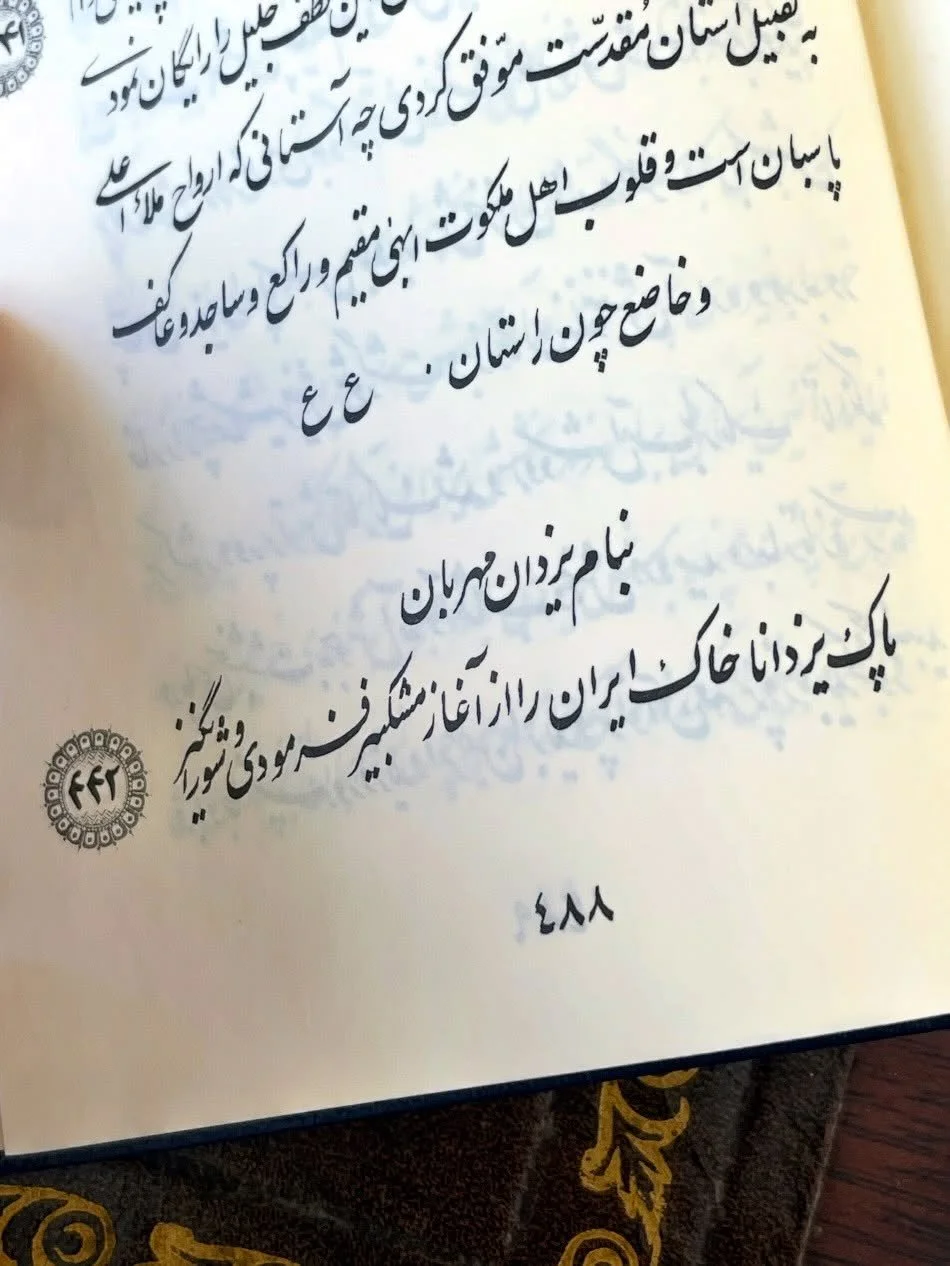 لطف جلیل را رایگان نمودی
به تقبیل آستان مُقدّست موّفق کردی چه آستانی که ارواح ملاء اعلی
پاسبان است و قلوب اهل ملکوت ابهی مقیم و راکع و ساجد و عاکف
و خاضع چون راستان . ع ع
بنام یزدان مهربان
پاک یزدانا خاک ایران را از آغاز مشکبیز فرمودی و شورانگیز
۴۴۲
۴۸۸